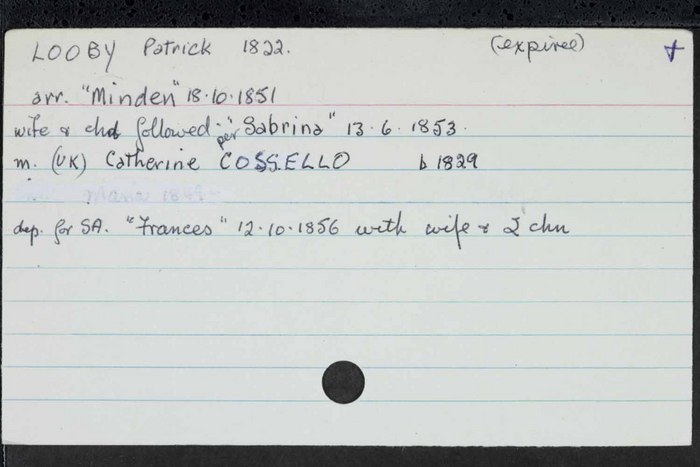 LOOBY Patrick 1822. (expiree)
arr. "Minden" 18.10.1851
wife & chd followed per "Sabrina" 13.6.1853.
m. (UK) Catherine COSSELLO b 1829
Maria 18
dep. for SA. "Frances" 12.10.1856 with wife & 2 chn